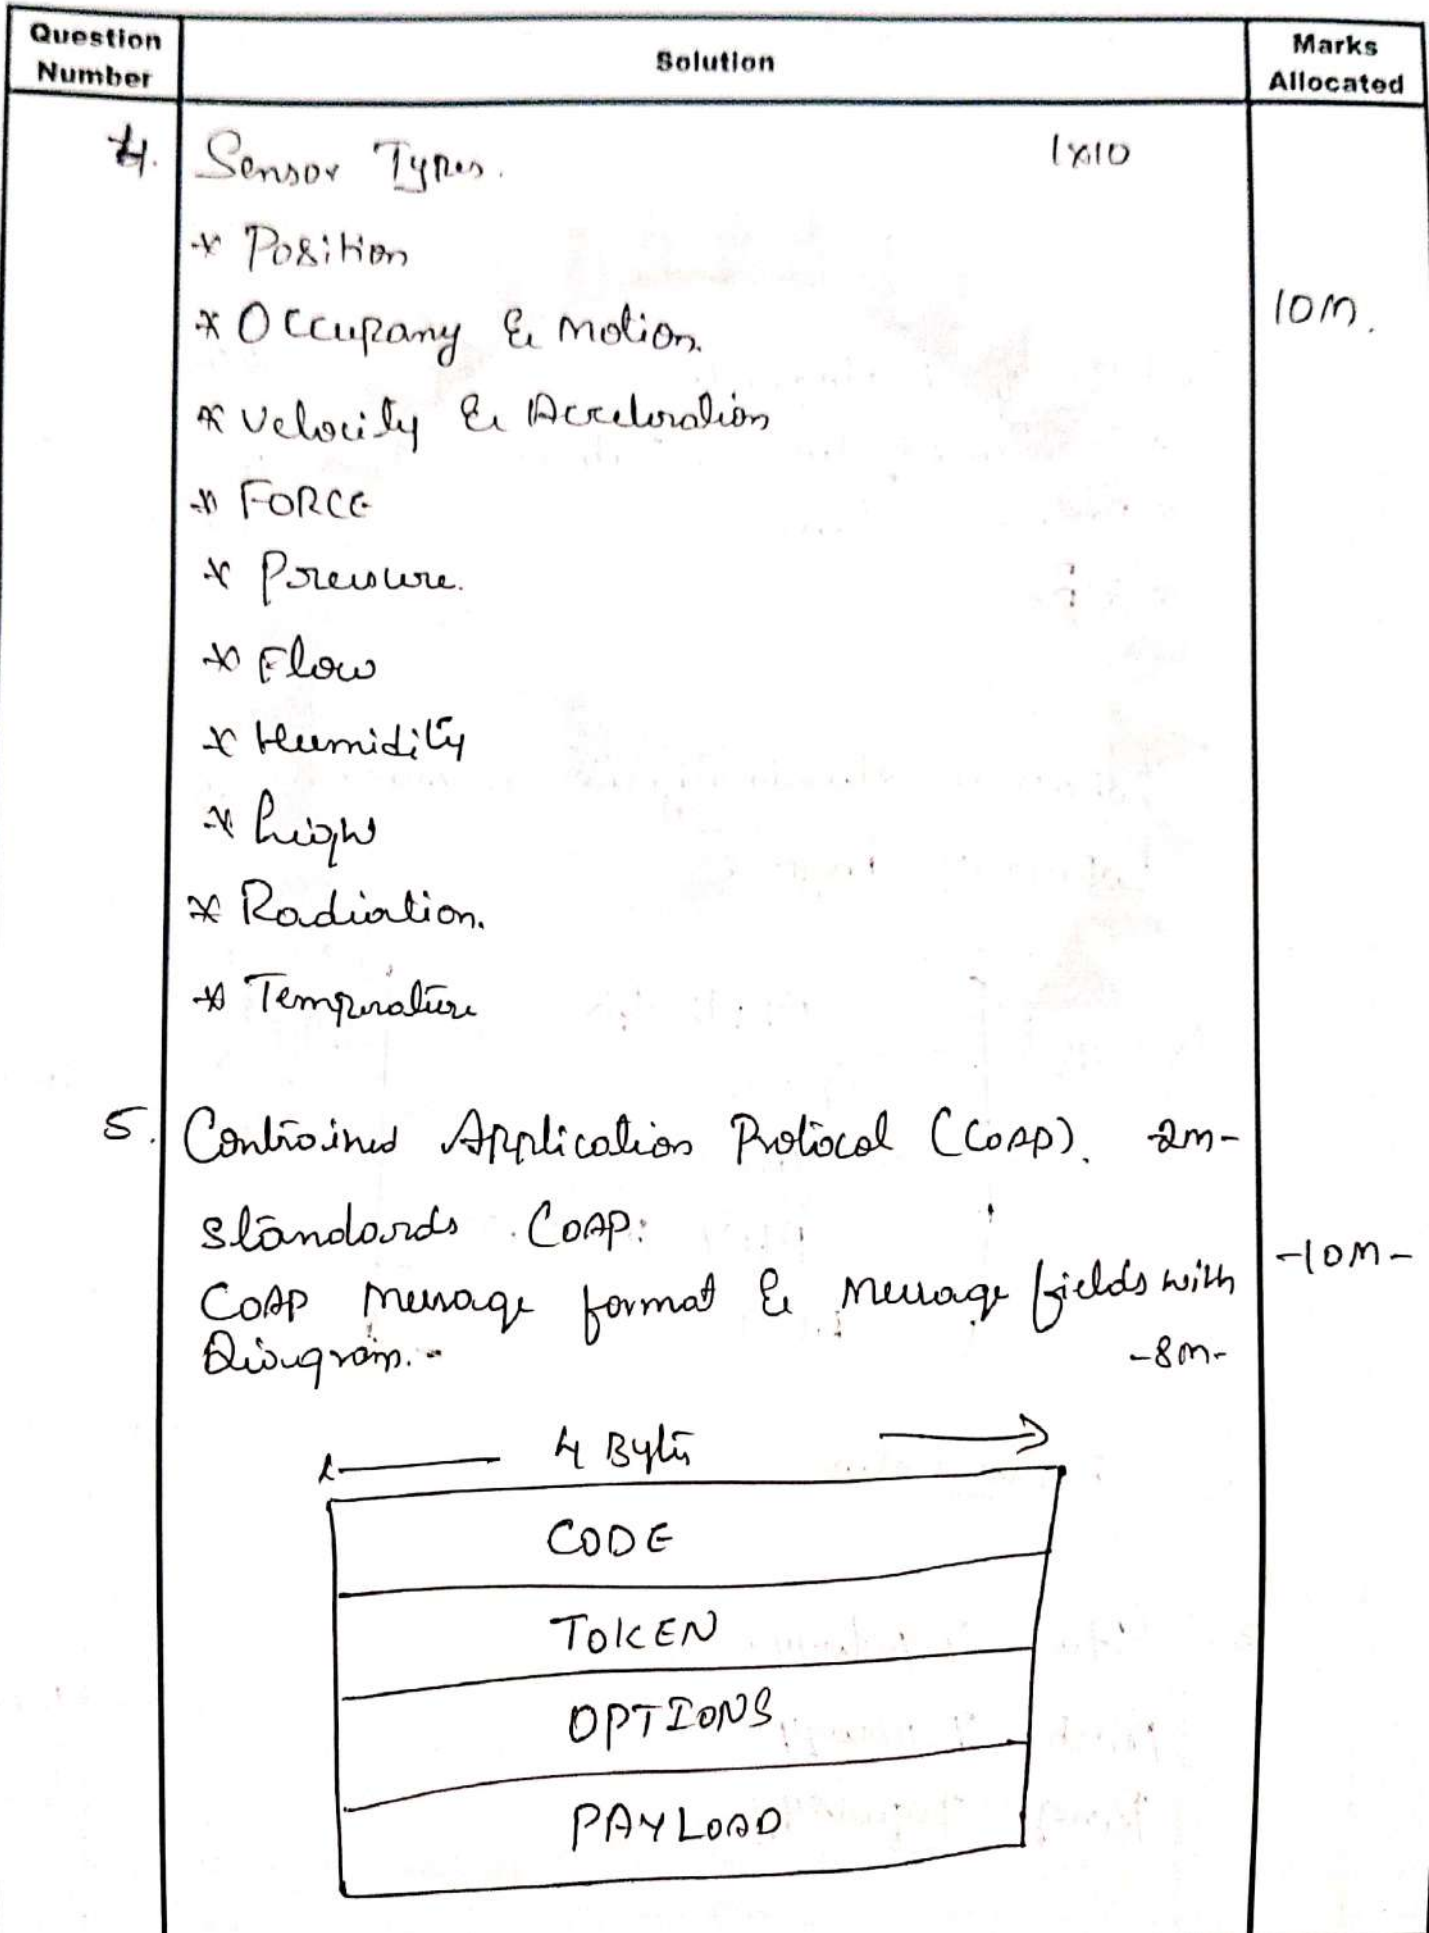 Question Number
Solution
Marks Allocated
4. Sensor Types. 1x10
* Position
* Occupany & Motion.
10M.
* Velocity & Acceleration
* FORCE
* Pressure.
* Flow
* Humidity
* Light
* Radiation.
* Temperature
5. Contrained Application Protocol (COAP). -2m-
Standards COAP:
-10M-
COAP Message format & Message fields with
Diagram. - -8m-
4 Bytes
CODE
TOKEN
OPTIONS
PAYLOAD